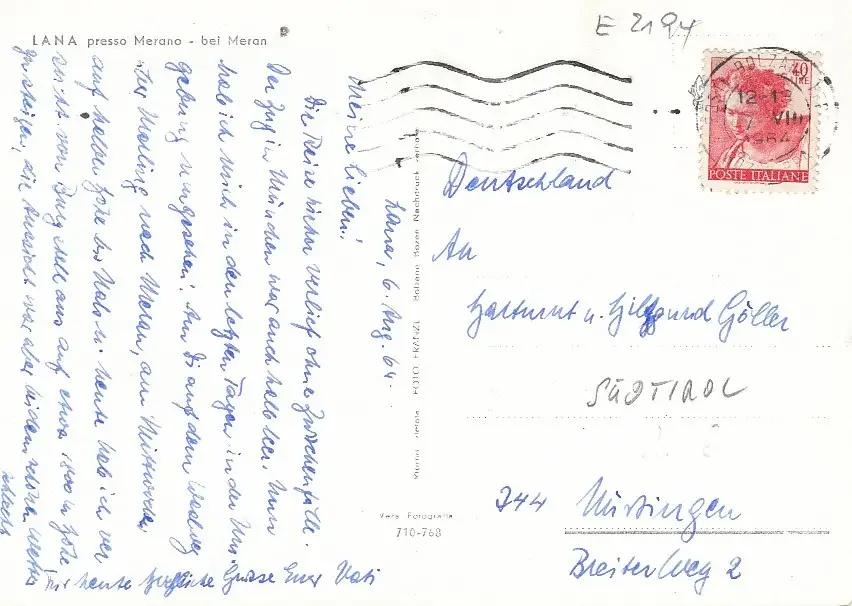 E 2194
LANA presso Merano - bei Meran
40
LIRE
BOLZA
12-1
7 VIII
1964
POSTE ITALIANE
Lana, 6. Aug. 64.
Meine Lieben!
Die Reise hierher verlief ohne Zwischenfälle.
Der Zug in München war auch halb leer. Nun
hab ich mich in den letzten Tagen in der Um
gebung umgesehen. Am Di auf dem Waalweg
über Marling nach Meran, am Mittwoch
auf halber Höhe bis und heute hab ich ver
sucht von Burgstall aus auf etwa 1800 m Höhe
zu steigen, die Aussicht war aber leider
schlecht
Für heute herzliche Grüsse Euer Vati
FOTO FRANZL Bolzano Bozen Nachdruck
Vera Fotografia
710-768
Deutschland
An
Hartmut u. Hildgund Göller
SÜDTIROL
744 Nürtingen
Breiter Weg 2